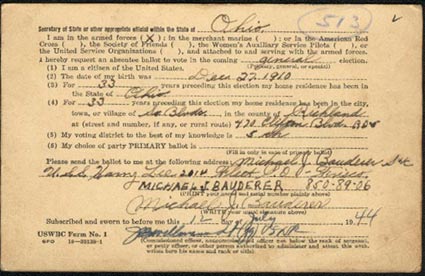 Ohio
513
Secretary of State or other appropriate official within the State of
I am in the armed forces (X); in the merchant marine ( ); or in the American Red
Cross ( ), the Society of Friends ( ), the Women's Auxiliary Service Pilots ( ), or
the United Service Organizations ( ), and attached to and serving with the armed forces.
I hereby request an absentee ballot to vote in the coming general election.
(Primary, general, or special)
(1) I am a citizen of the United States.
(2) The date of my birth was Dec. 22 1910
(3) For 33 years preceding this election my home residence has been in
the State of Ohio
(4) For 33 years preceding this election my home residence has been in the city,
town, or village of in the county of Richland
at (street and number, if any, or rural route) Blvd.
(5) My voting district to the best of my knowledge is 5
(6) My choice of party PRIMARY ballot is
(Fill in only in case of primary ballot)
Please send the ballot to me at the following address Michael J. Bauderer
U.S.S. Harry Lee Fleet P.O.
MICHAEL J BAUDERER 850-89-06
(PRINT your name and serial number plainly above)
Michael J. Bauderer
(WRITE your usual signature above)
Subscribed and sworn to before me this 12 day of July 1944
USWBC Form No. 1
GPO
(Commissioned officer, noncommissioned officer not below the rank of sergeant,
or petty officer, or other person authorized to administer and attest this oath
before his name and rank or title)